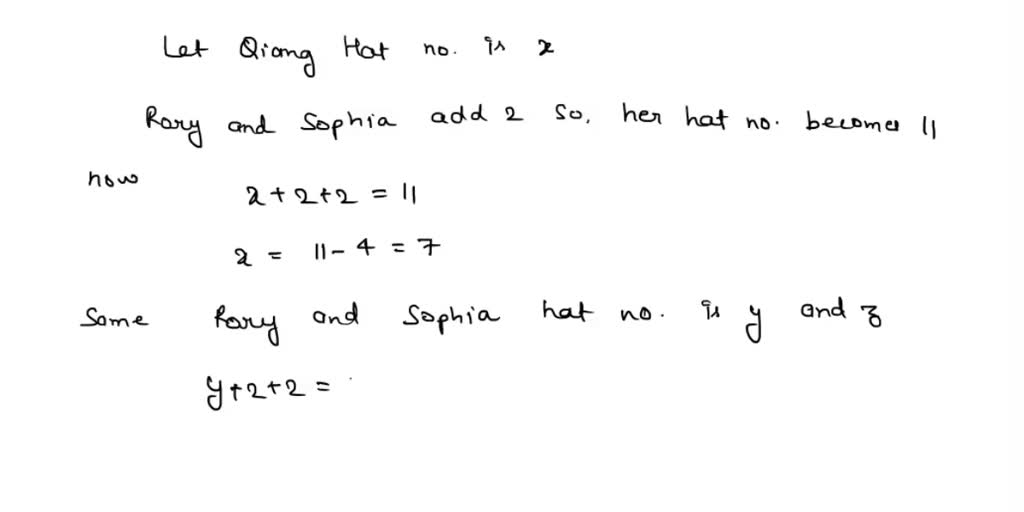 Let Qiang Hat no. is x
Rory and Sophia add 2 So, her hat no. becomes 11
now
x + 2 + 2 = 11
x = 11 - 4 = 7
Same Rory and Sophia hat no. is y and z
y + 2 + 2 =